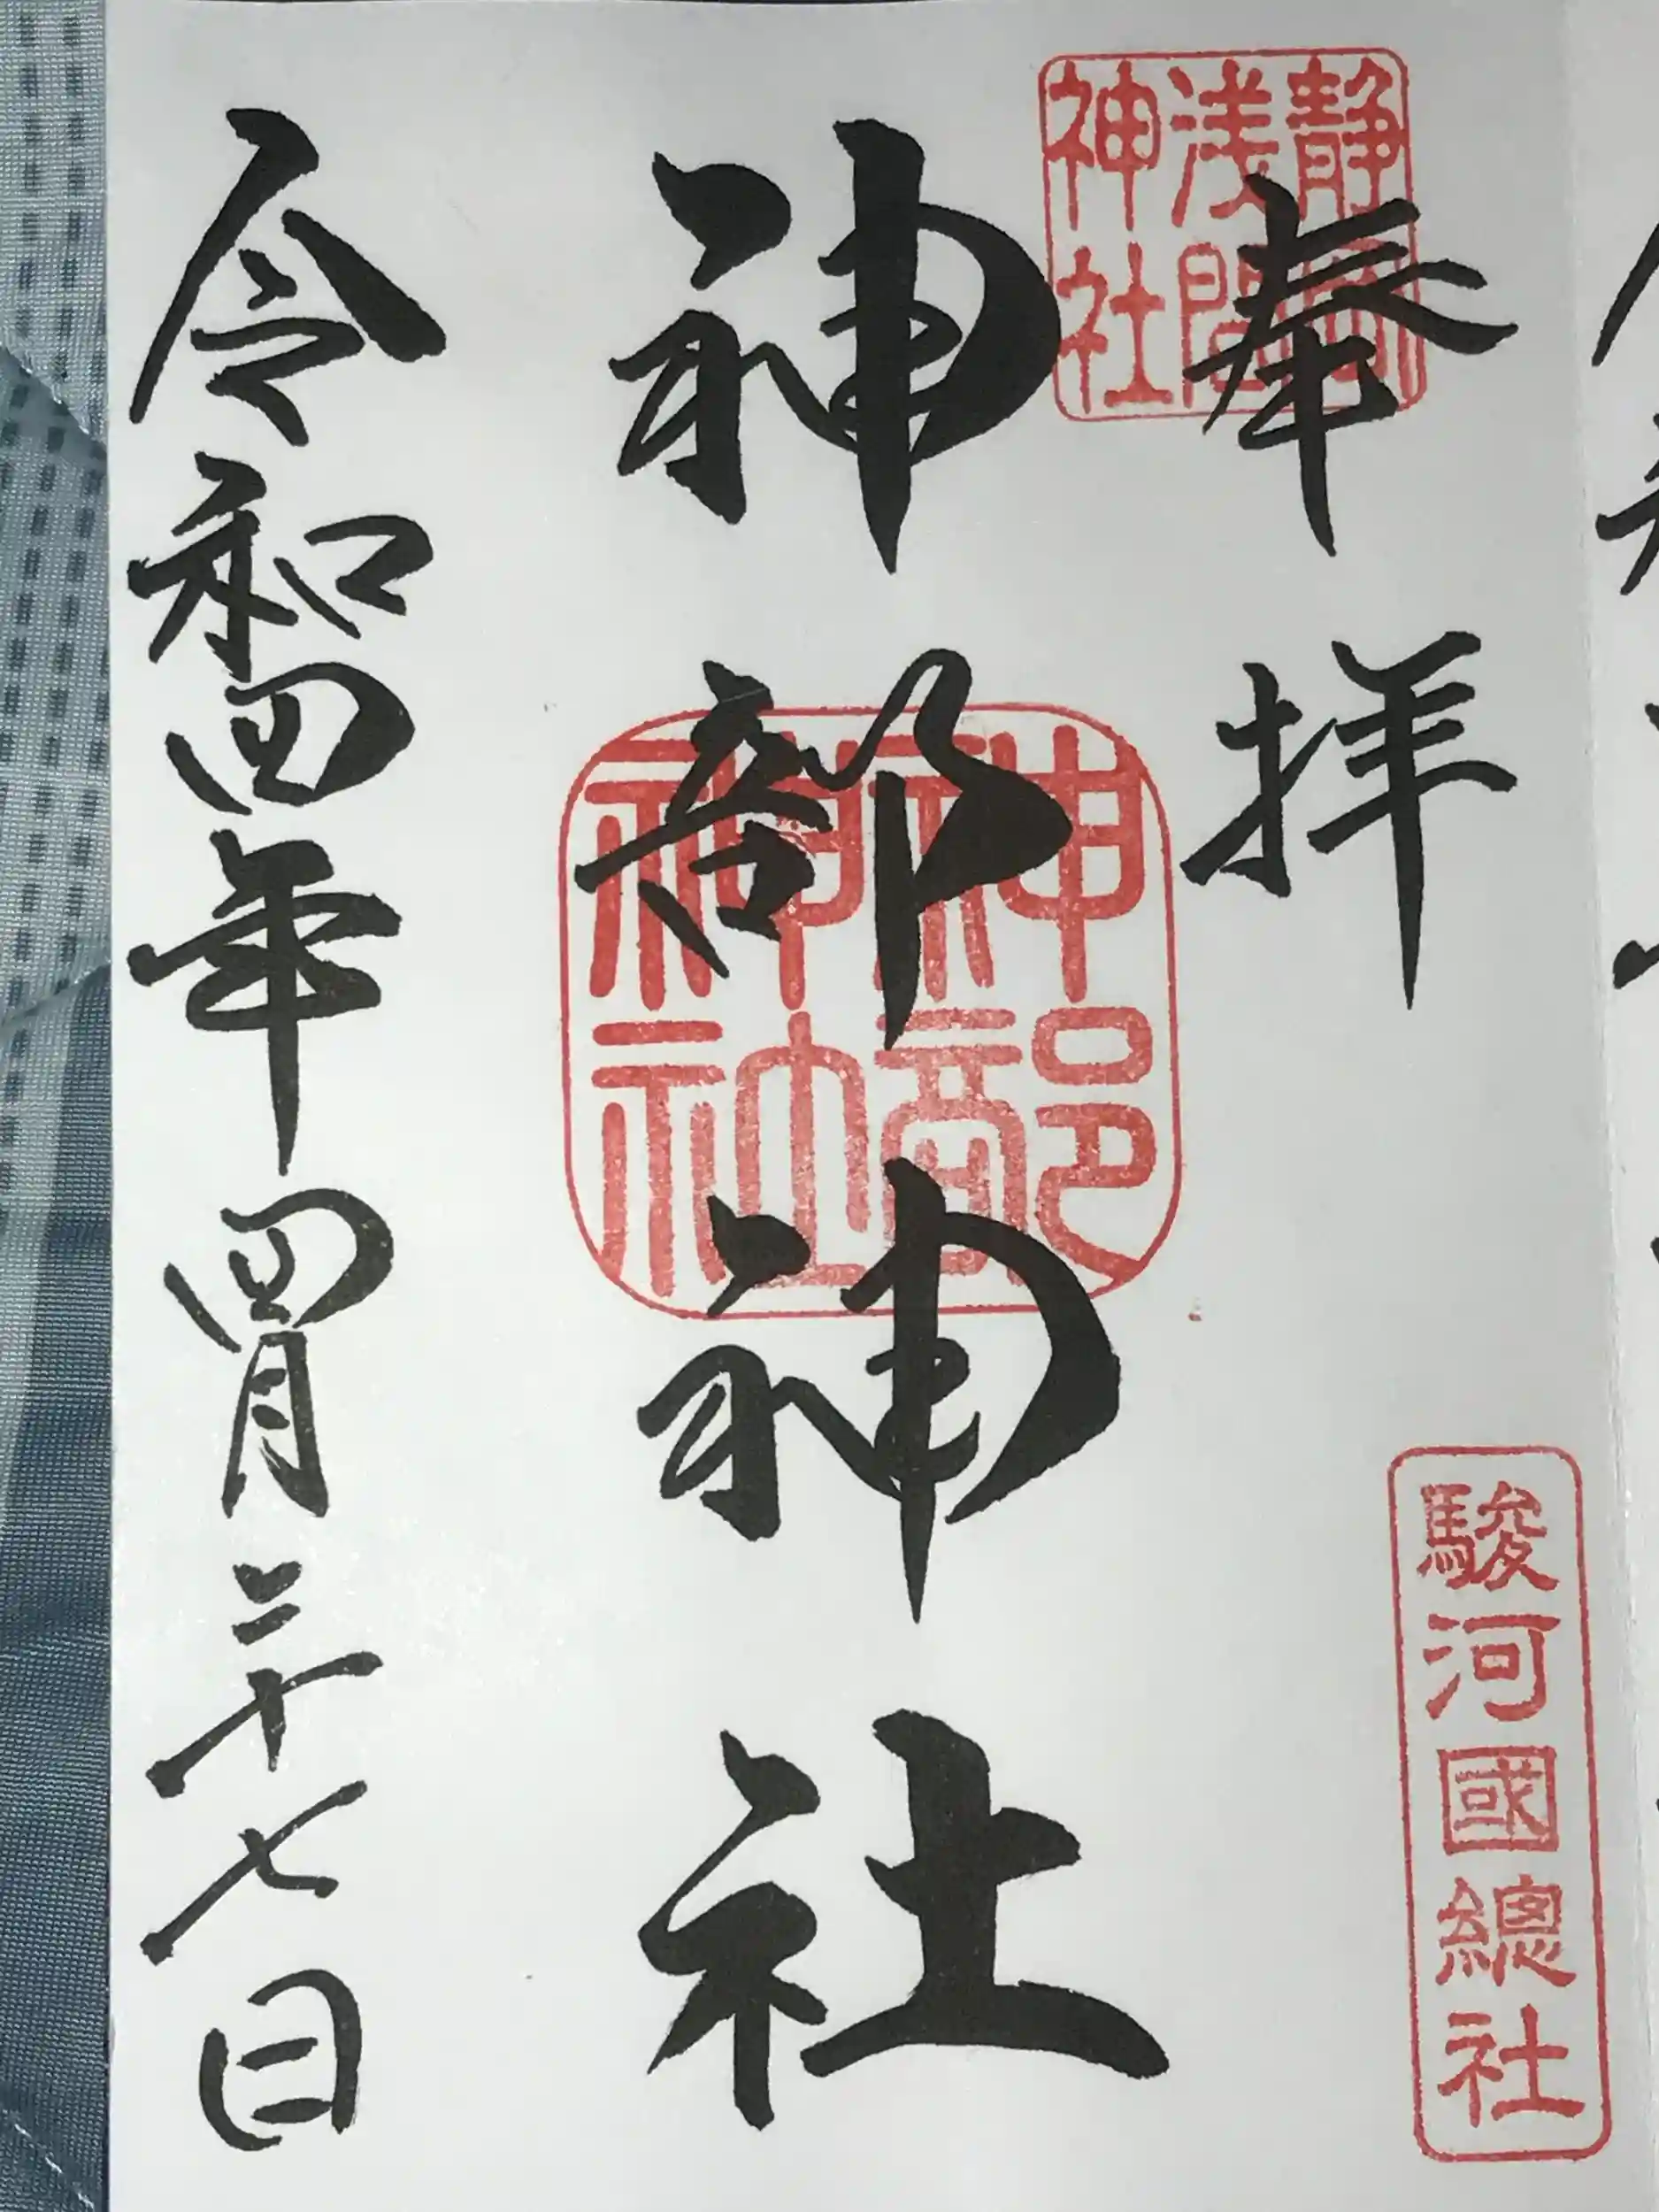 奉拝
静岡
浅間
神社
駿河國總社
神部神社
神部
神社
令和四年四月二十七日